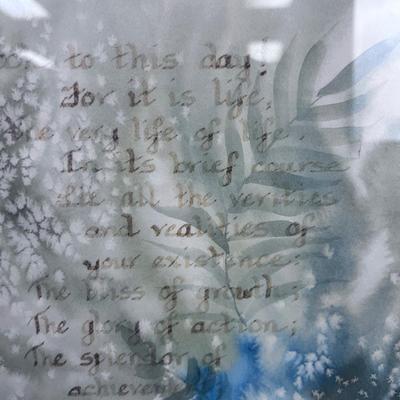 to this day!
For it is life,
the very life of life.
In its brief course
Lie all the verities
and realities of
your existence:
The bliss of growth;
The glory of action;
The splendor of